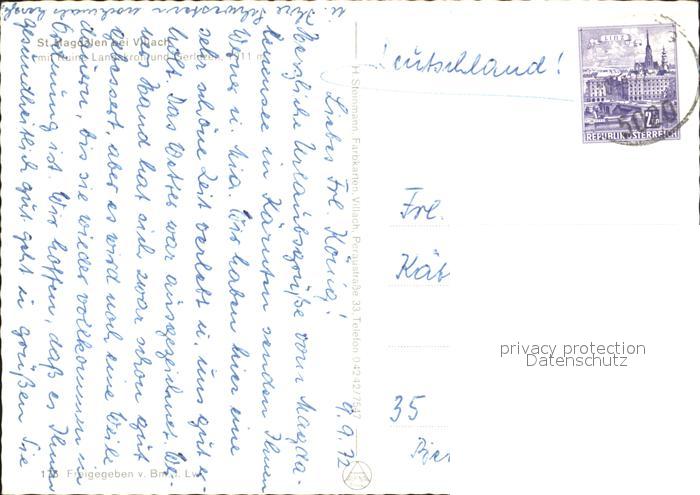 St. Magdalen bei Villach
mit Ruine Landskron und Gerlitzen, 1911 m
Liebes Frl. König!
9.9.72
Herzliche Urlaubsgrüße vom Magda-
lenensee in Kärnten senden Ihnen
u. Mia. Wir haben hier eine
sehr schöne Zeit verlebt u. uns gut er-
holt. Das Wetter war ausgezeichnet. Mei-
ne Hand hat sich zwar schon gut
gebessert, aber es wird noch eine Weile
dauern, bis sie wieder vollkommen in
Ordnung ist. Wir hoffen, daß es Ihnen
gesundheitlich gut geht u. grüßen Sie
u. Ihre Schwestern nochmals herzl.
H. Stemmann, Farbkarten, Villach, Peraustraße 33, Telefon 04242/7547
Freigegeben v. Bm. f. Lv.
Deutschland!
LINZ
2 S
REPUBLIK ÖSTERREICH
Frl.
Kät
35
privacy protection
Datenschutz